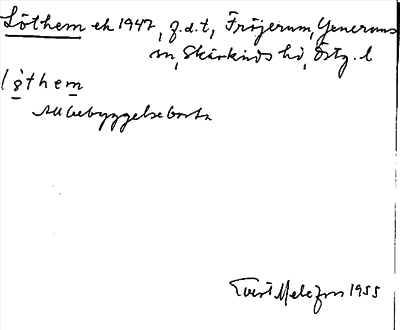 Löthem ek 1947, f.d.t, Fröjerum, Yxnerums
sn, Skärkinds hd, Östg. l
löthem
All bebyggelse borta
Evert Melefors 1955